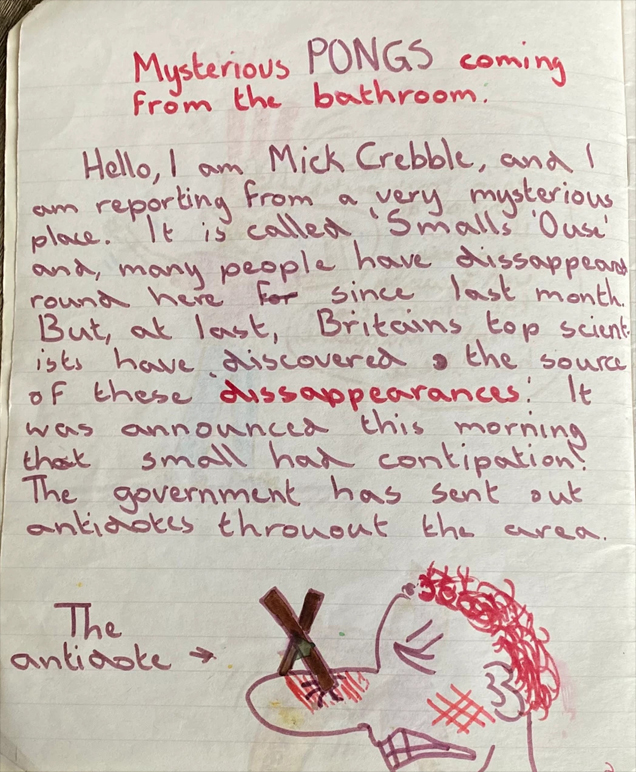 Mysterious PONGS coming
from the bathroom.
Hello, I am Mick Crebble, and I
am reporting from a very mysterious
place. It is called 'Smalls 'Ouse'
and, many people have dissappeard
round here for since last month.
But, at last, Britains top scient-
ists have discovered the source
of these 'dissappearances'. It
was announced this morning
that small had contipation!
The government has sent out
antidotes throuout the area.
The
antidote →